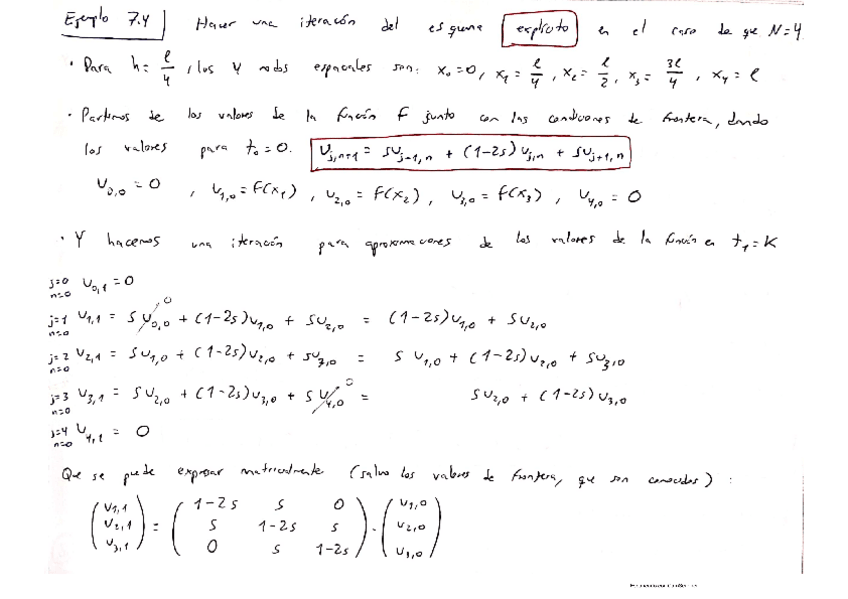 Ejemplo 7.4 Hacer una iteración del esquema explícito en el caso de que N=4
· Para h = l/4, los 4 nodos espaciales son: x₀=0, x₁ = l/4, x₂ = l/2, x₃ = 3l/4, x₄ = l
· Partimos de los valores de la función f junto con las condiciones de frontera, dando
los valores para t₀=0. U_{j,n+1} = SU_{j-1,n} + (1-2s)U_{j,n} + SU_{j+1,n}
U_{0,0} = 0, U_{1,0} = f(x₁), U_{2,0} = f(x₂), U_{3,0} = f(x₃), U_{4,0} = 0
· Y hacemos una iteración para aproximaciones de los valores de la función en t₁ = K
j=0 n=0 U_{0,1} = 0
j=1 n=0 U_{1,1} = SU_{0,0} 0 + (1-2s)U_{1,0} + SU_{2,0} = (1-2s)U_{1,0} + SU_{2,0}
j=2 n=0 U_{2,1} = SU_{1,0} + (1-2s)U_{2,0} + SU_{3,0} = SU_{1,0} + (1-2s)U_{2,0} + SU_{3,0}
j=3 n=0 U_{3,1} = SU_{2,0} + (1-2s)U_{3,0} + SU_{4,0} 0 = SU_{2,0} + (1-2s)U_{3,0}
j=4 n=0 U_{4,1} = 0
Que se puede expresar matricialmente (salvo los valores de frontera, que son conocidos):
(U_{1,1}) = (1-2s s 0) · (U_{1,0})
(U_{2,1}) (s 1-2s s) (U_{2,0})
(U_{3,1}) (0 s 1-2s) (U_{3,0})